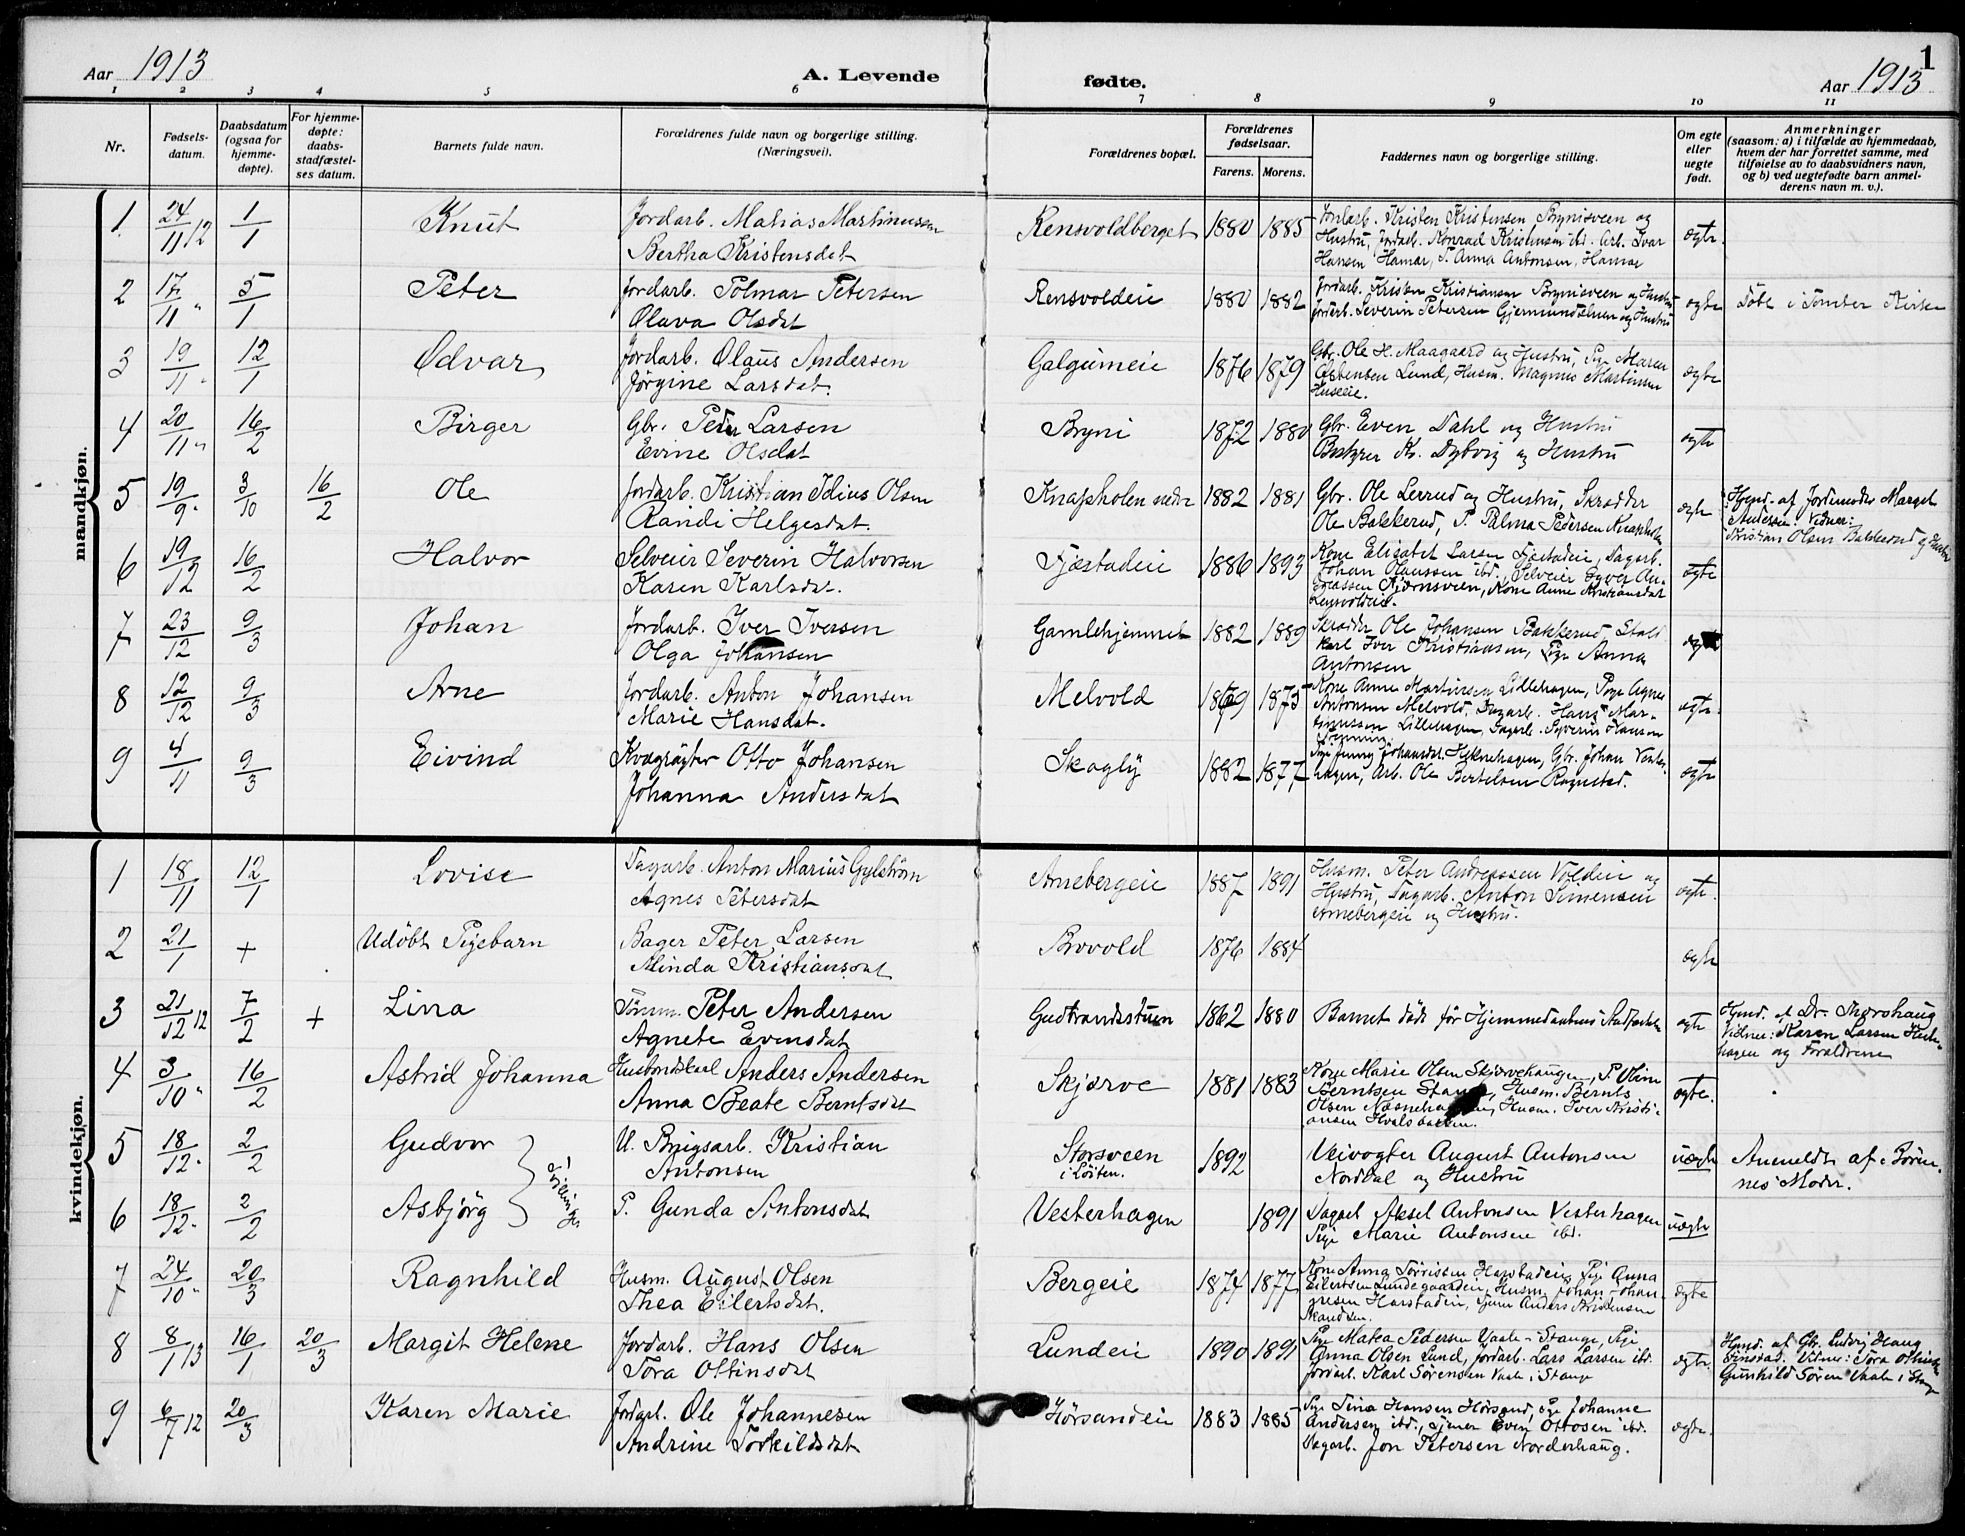 Aar 1913
A. Levende
fødte.
Aar 1913
1
1 2 3 4 5 6 7 8 9 10 11
Nr.
Fødsels-
datum.
Daabsdatum
(ogsaa for
hjemme-
døpte).
For hjemme-
døpte:
daabs-
stadfæstel-
ses datum.
Barnets fulde navn.
Forældrenes fulde navn og borgerlige stilling.
(Næringsvei).
Forældrenes bopæl.
Forældrenes
fødselsaar.
Farens. Morens.
Faddernes navn og borgerlige stilling.
Om egte
eller
uegte
født.
Anmerkninger
(saasom: a) i tilfælde av hjemmedaab,
hvem der har forrettet samme, med
tilføielse av to daabsvidners navn,
og b) ved uegtefødte barn anmel-
derens navn m. v.).
mandkjøn.
1. 24/11 12 1/1 Knut Jordarb. Matias Martinussen Rensvoldberget 1880 1885 Jordarb. Kristen Kristensen Brynisveen og ægte.
Bertha Kristensdat Hustru, Jordarb. Konrad Kristensen ibd. Arb. Ivar
Hansen Hamar, P. Anna Antonsen, Hamar
2 17/11 " 5/1 Peter Jordarb. Polmar Petersen Rensvoldeie 1880 1882 Jordarb. Kristen Kristiansen Brynisveen og Hustru ægte Døbt i Tomter Kirke
Olava Olsdat Jordarb. Severin Petersen og Hustru
3 19/11 " 12/1 Odvar Jordarb. Olaus Andersen Galgumeie 1876 1879 Gbr. Ole H. Maagaard og Hustru, Pige Maren ægte
Jørgine Larsdat. Lund, Husm. Magnus Martinsen
Huseeie.
4 20/11 " 16/2 Birger Gbr. Peder Larsen Bryni 1872 1880 Gbr. Even Dahl og Hustru ægte
Evine Olsdat Bestyrer Kr. Dybvig og Hustru
5 19/9 " 3/10 16/2 Ole Jordarb. Kristian Idius Olsen Knapholen nedre 1882 1881 Gbr. Ole Lerrud og Hustru, Skrædder ægte Hjmd. af Jordemoder Marget
Randi Helgesdat. Ole Bakkerud, P. Palma Pedersen Knapholen Andersen. Vidner:
Kristian Olsen Bakkerud og Hustru
6 19/12 16/2 Halvor Selveier Severin Halvorsen Fjæstadeie 1886 1893 Kone Elisabet Larsen Fjæstadeie, Dagarb. ægte
Karen Karlsdat. Johan Olaussen ibd., Selveier Syver An-
dreassen Bjørnsveen, Kone Anne Kristiansdat
7 23/12 9/3 Johan Jordarb. Iver Iversen Gamlehjemmet 1882 1889 Skrædder Ole Johansen Bakkerud, Stald-
Olga Johansen karl Iver Kristiansen, Pige Anna
Antonsen
8 12/12 9/3 Arne Jordarb. Anton Johansen Melvold 1869 1875 Kone Anne Martinsen Lillehagen, Pige Agnes ægte.
Marie Hansdat. Antonsen Melvold, Dagarb. Hans Mar-
tinussen Lillehagen, Dagarb. Syverin Hansen
9 4/11 9/3 Eivind Kvægrøgter Otto Johansen Skogly 1882 1877 Pige Jenny Johansdat. Heknehagen, Gbr. Johan Vester- ægte
Johanna Andersdat hagen, Arb. Ole Bertelsen Rognstad.
kvindekjøn.
1 18/11 12/1 Lovise Dagarb. Anton Marius Gylstrøm Arnebergeie 1887 1891 Husm. Peter Andreassen Voldeie og ægte.
Agnes Petersdat Hustru, Dagarb. Anton Simensen
Arnebergeie og Hustru.
2 21/1 + Udøbt Pigebarn Bager Peter Larsen Brovold 1876 1884 ægte
Alinda Kristiansdat
3 21/12 12 7/2 + Lina Tømm. Peter Andersen Gudbrandsstuen 1862 1880 Barnet døde før Hjemmedaabens Stadfæstelse ægte Hjmd. af Dr. Thorshaug
Agnete Evensdat Vidner: Karen Larsen
og Forældrene
4 3/10 " 16/2 Astrid Johanna Husbondskarl Anders Andersen Skjærve 1881 1883 Kone Marie Olsen Skjærvehaugen, P. Oline ægte.
Anna Beate Berntsdat Berntsen Stange, Husm. Bernts
Olsen Næsnehagen, Husm. Iver Kristi-
ansen Hvalsbakken.
5 18/12 " 2/2 Gudvor U. Brugsarb. Kristian Storsveen 1892 Veivogter August Antonsen uægte Anmeldt af Bør-
Antonsen i Løiten. Nordbal og Hustru nes Moder.
Tvillinger
6 18/12 " 2/2 Asbjörg P. Gunda Antonsdat Vesterhagen 1891 Aksel Antonsen Vesterhagen uægte
Pige Marie Antonsen ibd.
7 24/10 " 20/3 Ragnhild Husm. August Olsen Bergeie 1874 1877 Kone Anna Harstadeie, Pige Anna ægte
Thea Eilertsdat. Eilertsen Lundegaardeie, Husm. Johan Johan-
nesen Harstadeie, Anders Kristensen
8 8/1 13 16/1 20/3 Margit Helene Jordarb. Hans Olsen Lundeie 1890 1891 Pige Matea Pedersen Vaale - Stange, Pige ægte. Hjmd. af Gbr. Ludvig Haug
Tora Ottinsdat Anna Olsen Lund, Jordarb. Lars Larsen ibd. Vidner: Tora Ottinsdat
Jordarb. Karl Sørensen Vaale i Stange Gunhild Søren Vaale i Stange
9 6/7 12 20/3 Karen Marie Jordarb. Ole Johannesen Hørsandeie 1883 1885 Pige Tina Hansen Hørsand, Pige Johanne ægte.
Andrine Torkildsdat Andersen ibd., tjener Even Ottosen ibd.
Dagarb. Jon Petersen Norderhaug.